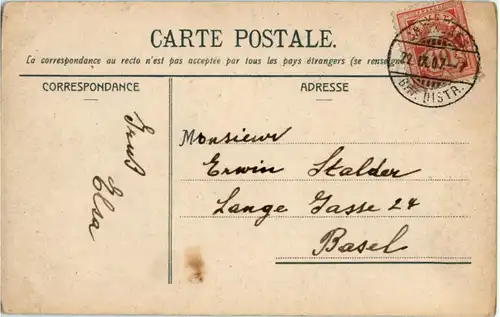 CARTE POSTALE.
La correspondance au recto n'est pas acceptée par tous les pays étrangers (se renseign
CORRESPONDANCE
ADRESSE
Gruß
Elsa
Monsieur
Erwin Stalder
Lange Gasse 24
Basel
DISTR.